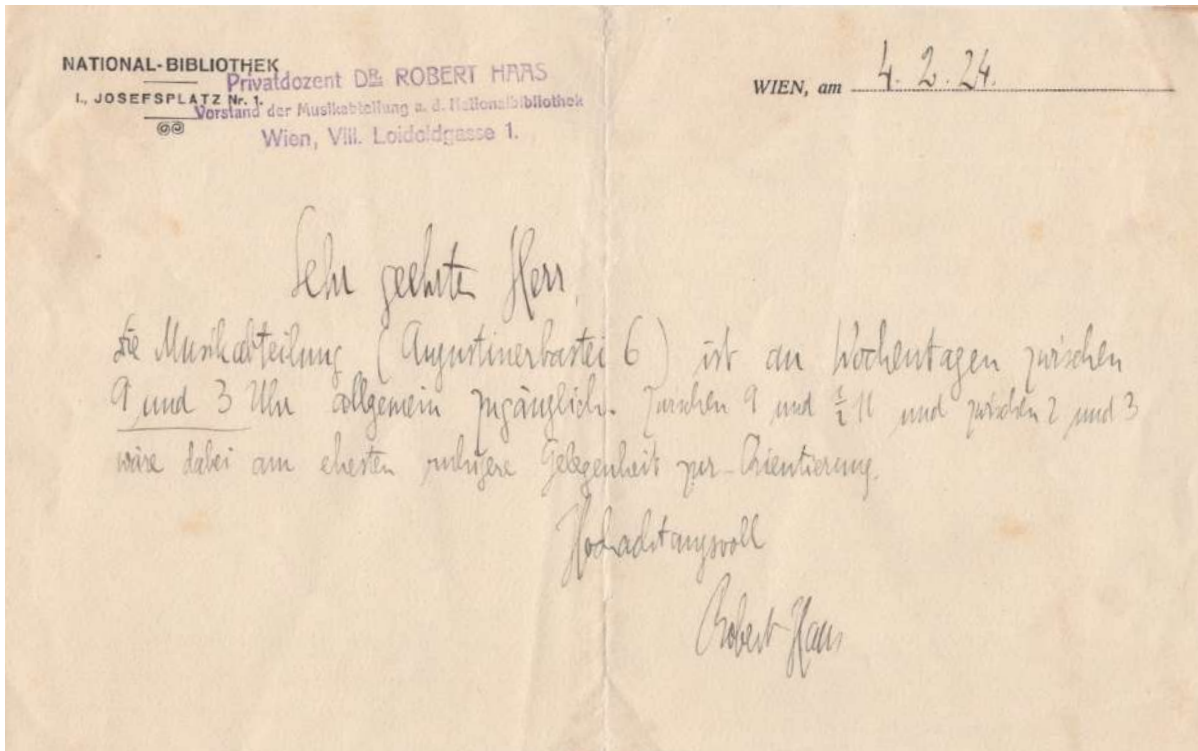 NATIONAL-BIBLIOTHEK
I., JOSEFSPLATZ Nr. 1.
Privatdozent DR. ROBERT HAAS
Vorstand der Musikabteilung a. d. Nationalbibliothek
Wien, VIII. Loidoldgasse 1.
WIEN, am 4. 2. 24.
Sehr geehrter Herr,
die Musikabteilung (Augustinerbastei 6) ist an Wochentagen zwischen
9 und 3 Uhr allgemein zugänglich. Zwischen 9 und ½ 11 und zwischen 2 und 3
wäre dabei am ehesten ruhigere Gelegenheit zur Orientierung.
Hochachtungsvoll
Robert Haas